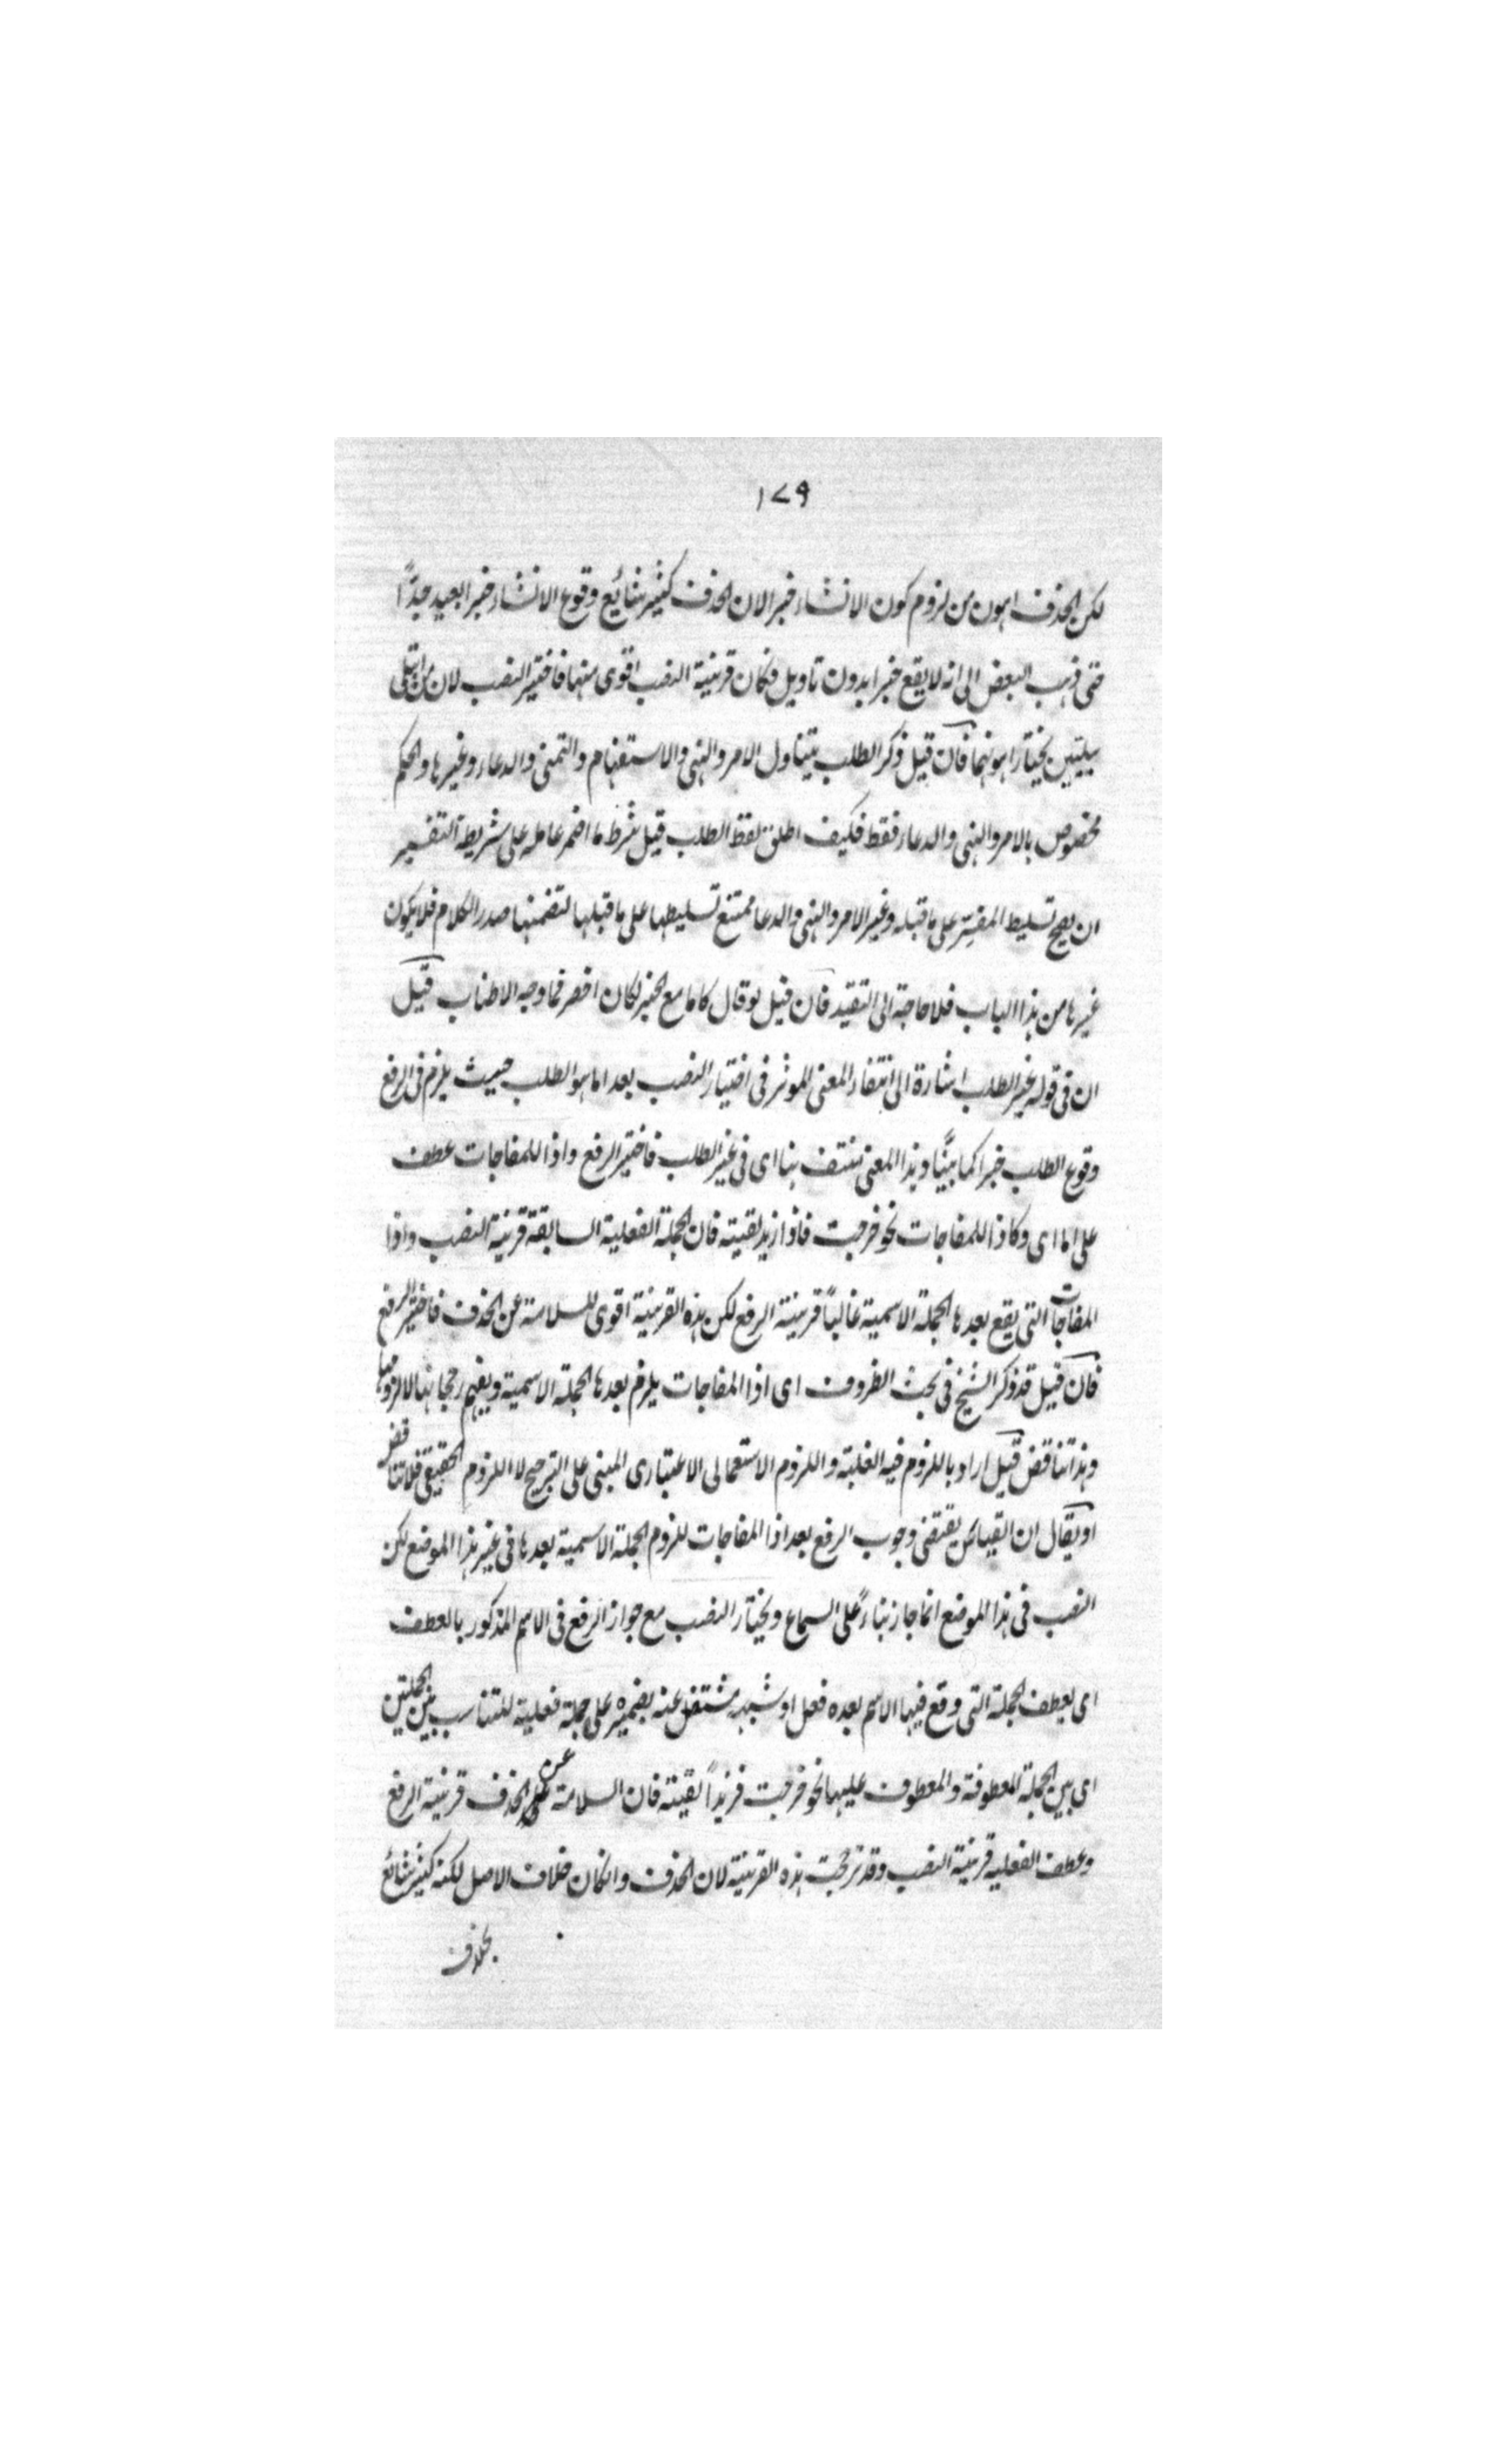 ١٧٩
لكن الحذف اهون من لزوم كون الانشاء خبرا لان الحذف كثير شائع وقوع الانشاء خبرا بعيد جدًّا
حتى ذهب البعض الى انه لا يقع خبرا بدون تاويل فكان قرينة النصب اقوى منها فاختير النصب لان من ابتلى
ببليتين يختار اهونهما فان قيل ذكر الطلب يتناول الامر والنهى والاستفهام والتمنى والدعاء وغيرها والحكم
مخصوص بالامر والنهى والدعاء فقط فكيف اطلق لفظ الطلب قيل شرط ما اضمر عامله على شريطة التفسير
ان يصح تسليط المفسِّر على ما قبله وغير الامر والنهى والدعا ممتنع تسليطها على ما قبلها لتضمنها صدر الكلام فلا يكون
غيرها من هذا الباب فلا حاجة الى التقيد فان قيل لو قال كاما مع الخبر لكان اخصر فما وجه الاطناب قيل
ان فى قوله لغير الطلب اشارة الى انتفاء المعنى الموثر فى اختيار النصب بعد اما هو الطلب حيث يلزم فى الرفع
وقوع الطلب خبرا كما بيَّنا وهذا المعنى منتف هنا اى فى غير الطلب فاختير الرفع واذا للمفاجات عطف
على اما اى وكاذا للمفاجات نحو خرجت فاذا زيد لقيته فان الجملة الفعلية السابقة قرينة النصب واذا
المفاجات التى يقع بعدها الجملة الاسمية غالبًا قرينة الرفع لكن هذه القرينة اقوى للسلامة عن الحذف فاختير الرفع
فان قيل قد ذكر الشيخ فى بحث الظروف اى اذا المفاجات يلزم بعدها الجملة الاسمية ويفهم رجحانها لا لزومها
وهذا تناقض قيل اراد باللزوم فيه الغلبة واللزوم الاستعمالى الاعتبارى المبنى على الترجيح لا اللزوم الحقيقى فلا تناقض
او يقال ان القياس يقتضى وجوب الرفع بعد اذا المفاجات للزوم الجملة الاسمية بعدها فى غير هذا الموضع لكن
النصب فى هذا الموضع انما جاز بناءً على السماع ويختار النصب مع جواز الرفع فى الاسم المذكور بالعطف
اى بعطف الجملة التى وقع فيها الاسم بعده فعل او شبهه مشتغل عنه بضميره على جملة فعلية للتناسب بين الجملتين
اى بين الجملة المعطوفة والمعطوف عليها نحو خرجت فزيدًا لقيته فان السلامة عن الحذف قرينة الرفع
وعطف الفعلية قرينة النصب وقد ترجحت هذه القرينة لان الحذف وانكان خلاف الاصل لكنه كثير شائع
بخلاف